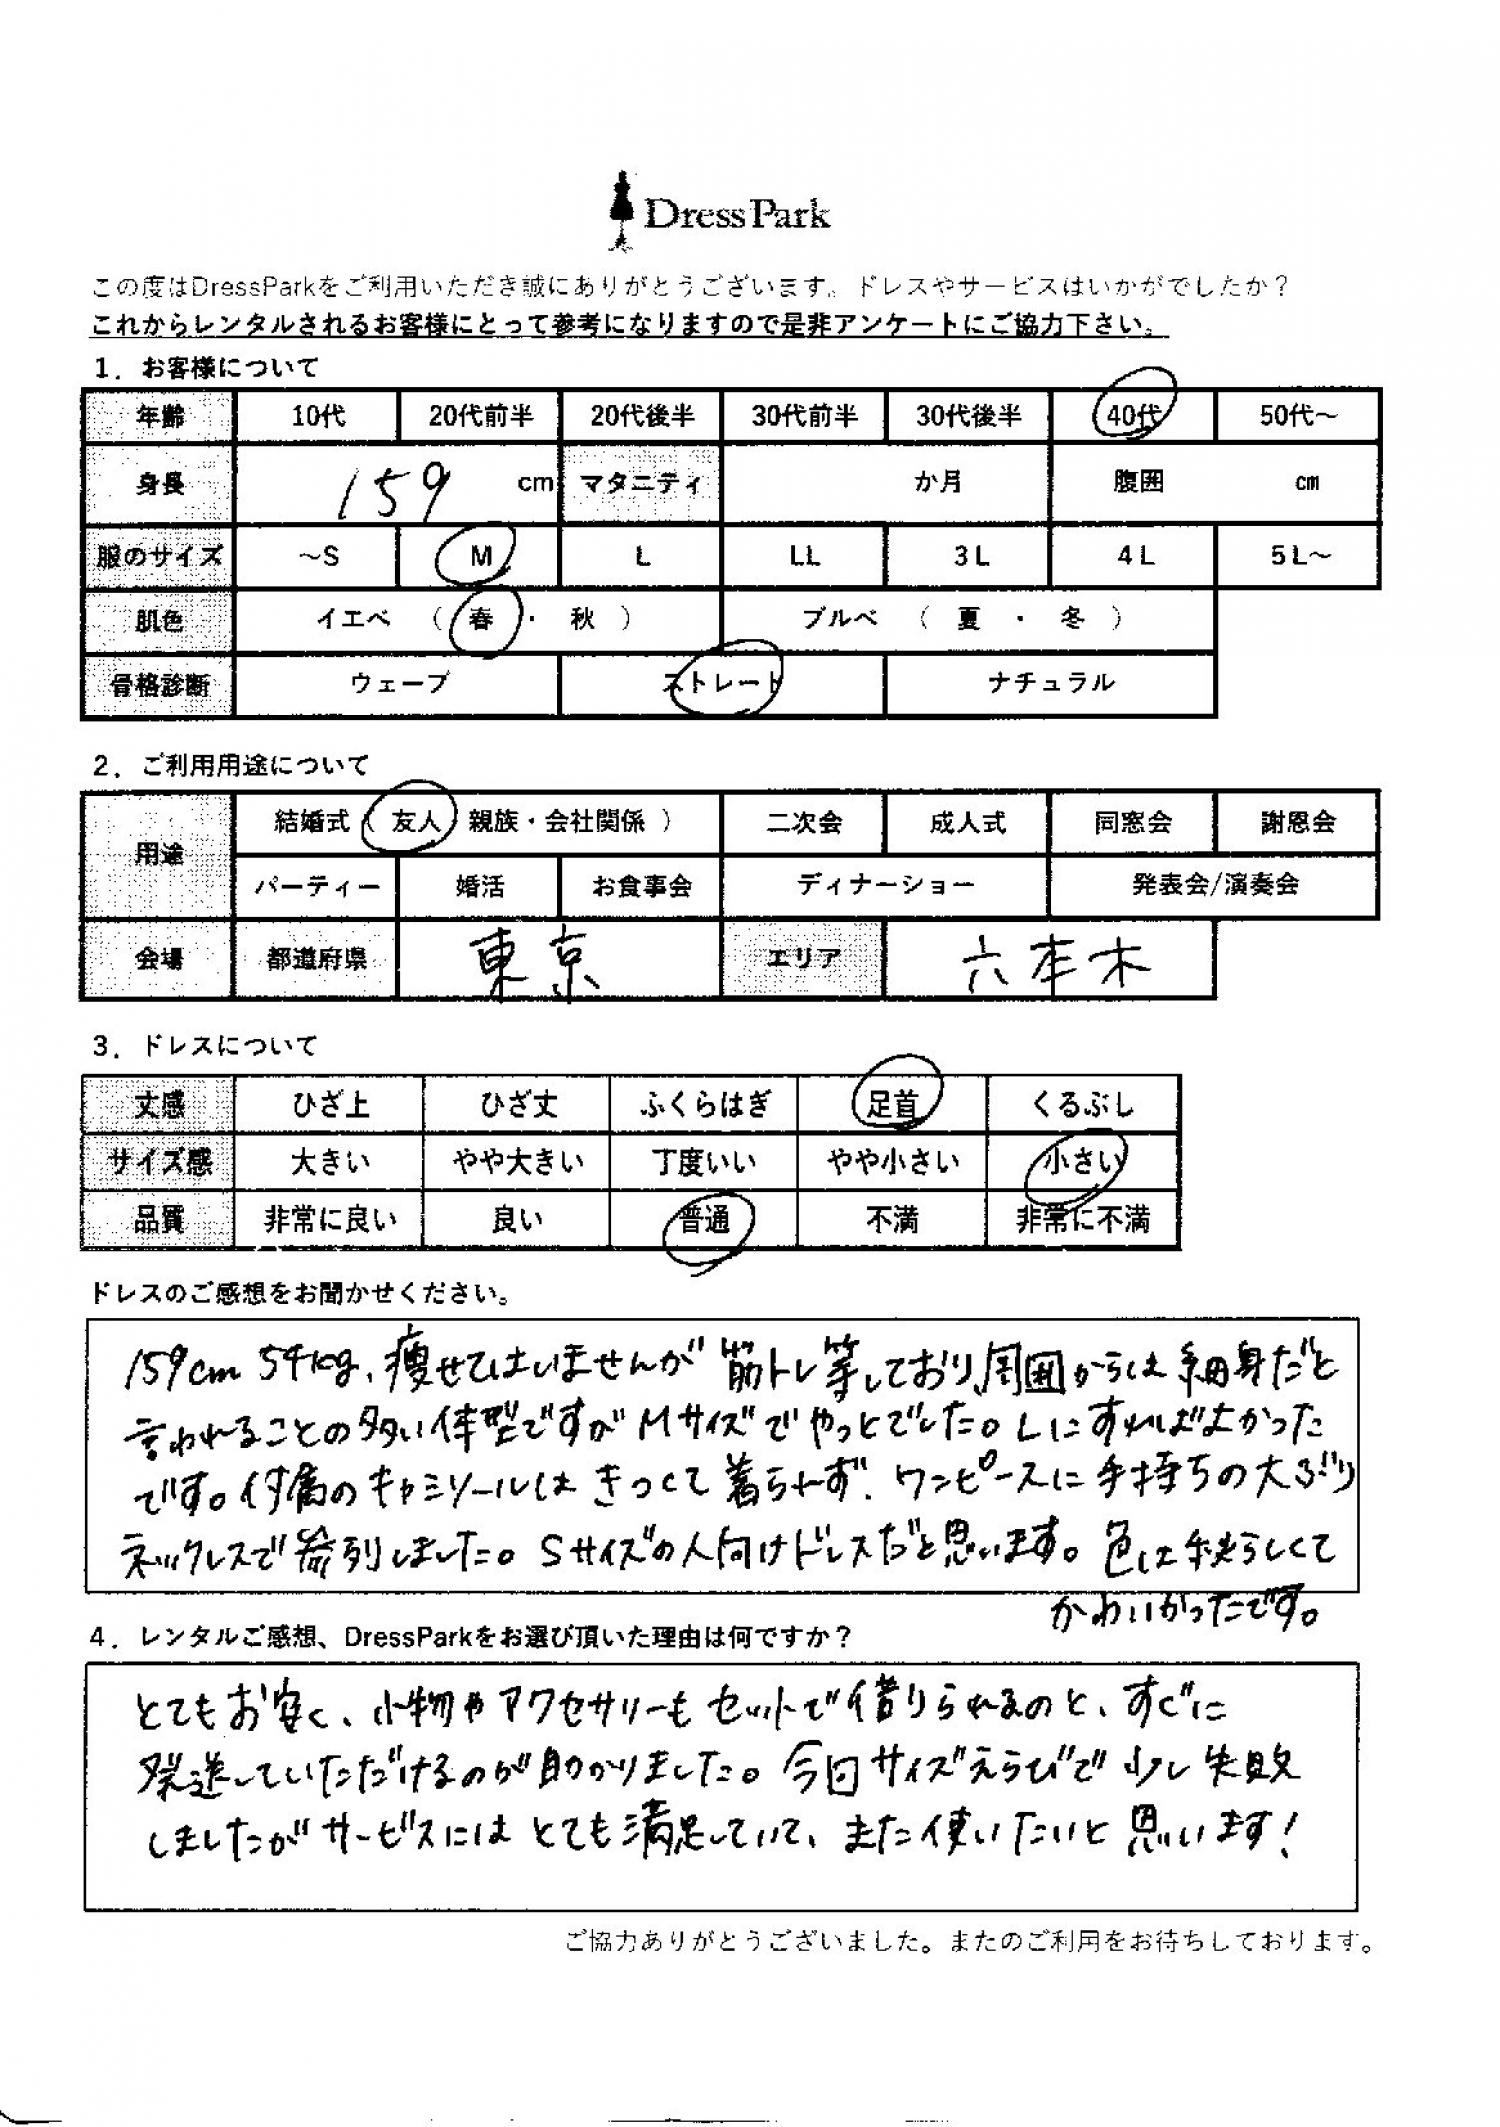 DressPark
この度はDressParkをご利用いただき誠にありがとうございます。ドレスやサービスはいかがでしたか？
これからレンタルされるお客様にとって参考になりますので是非アンケートにご協力下さい。
1．お客様について
年齢 10代 20代前半 20代後半 30代前半 30代後半 40代 50代～
身長 159 cm マタニティ か月 腹囲 cm
服のサイズ ～S M L LL 3L 4L 5L～
肌色 イエベ （ 春 ・ 秋 ） ブルベ （ 夏 ・ 冬 ）
骨格診断 ウェーブ ストレート ナチュラル
2．ご利用用途について
用途 結婚式（ 友人・親族・会社関係 ） 二次会 成人式 同窓会 謝恩会
パーティー 婚活 お食事会 ディナーショー 発表会/演奏会
会場 都道府県 東京 エリア 六本木
3．ドレスについて
丈感 ひざ上 ひざ丈 ふくらはぎ 足首 くるぶし
サイズ感 大きい やや大きい 丁度いい やや小さい 小さい
品質 非常に良い 良い 普通 不満 非常に不満
ドレスのご感想をお聞かせください。
159cm 54kg、痩せてはいませんが筋トレ等しており、周囲からは細身だと
言われることの多い体型ですがMサイズでやっとでした。Lにすればよかった
です。付属のキャミソールはきつくて着られず、ワンピースに手持ちの大ぶり
ネックレスで参列しました。Sサイズの人向けドレスだと思います。色は秋らしくて
かわいかったです。
4．レンタルご感想、DressParkをお選び頂いた理由は何ですか？
とてもお安く、小物やアクセサリーもセットで借りられるのと、すぐに
発送していただけるのが助かりました。今回サイズえらびで少し失敗
しましたがサービスにはとても満足していて、また使いたいと思います！
ご協力ありがとうございました。またのご利用をお待ちしております。